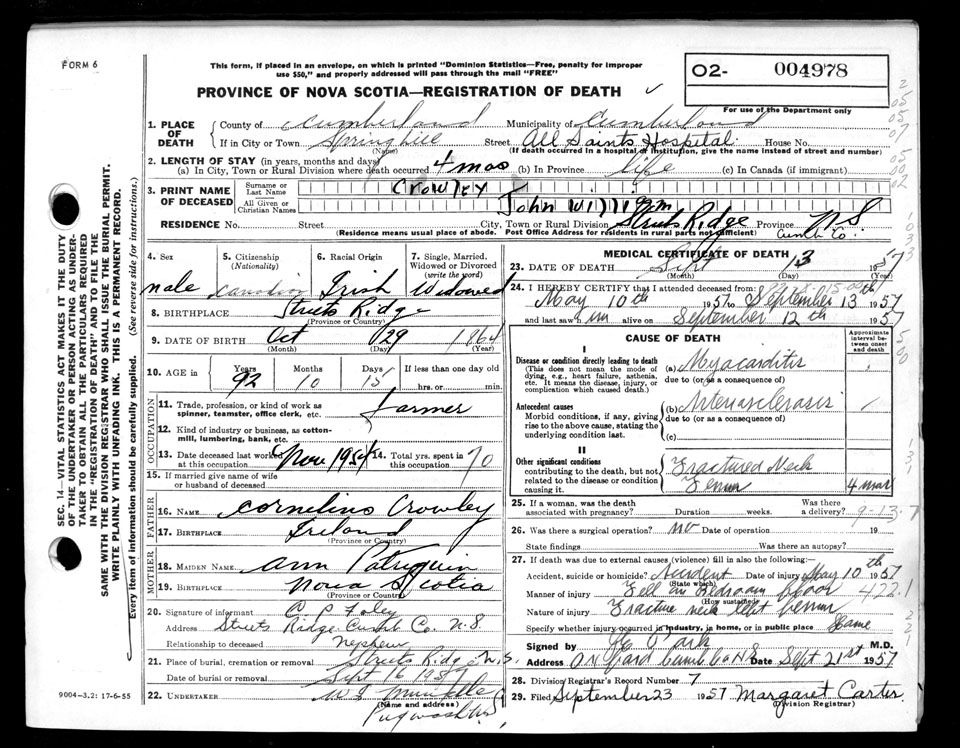 FORM 6
This form, if placed in an envelope, on which is printed "Dominion Statistics—Free, penalty for improper
use $50," and properly addressed will pass through the mail "FREE"
02- 004978
PROVINCE OF NOVA SCOTIA—REGISTRATION OF DEATH
For use of the Department only
1. PLACE OF DEATH
County of Cumberland Municipality of Cumberland
If in City or Town Springhill Street All Saints Hospital House No.
(Name) (If death occurred in a hospital or institution, give the name instead of street and number)
2. LENGTH OF STAY (in years, months and days)
(a) In City, Town or Rural Division where death occurred 4 mos (b) In Province life (c) In Canada (if immigrant)
3. PRINT NAME OF DECEASED
Surname or Last Name Crowley
All Given or Christian Names John William
RESIDENCE No. Street City, Town or Rural Division Streets Ridge Province N S
(Residence means usual place of abode. Post Office Address for residents in rural parts not sufficient) Cumb Co.
4. Sex male
5. Citizenship (Nationality) Canadian
6. Racial Origin Irish
7. Single, Married, Widowed or Divorced (write the word) Widowed
8. BIRTHPLACE Streets Ridge
(Province or Country)
9. DATE OF BIRTH Oct 29 1864
(Month) (Day) (Year)
10. AGE in Years 92 Months 10 Days 15 If less than one day
hrs. or min.
OCCUPATION
11. Trade, profession, or kind of work as
spinner, teamster, office clerk, etc. Farmer
12. Kind of industry or business, as cotton-
mill, lumbering, bank, etc.
13. Date deceased last worked
at this occupation Nov 1954
14. Total yrs. spent in
this occupation 70
15. If married give name of wife
or husband of deceased
FATHER
16. NAME Cornelius Crowley
17. BIRTHPLACE Ireland
(Province or Country)
MOTHER
18. MAIDEN NAME Ann Patriquin
19. BIRTHPLACE Nova Scotia
(Province or Country)
20. Signature of informant C P Foley
Address Streets Ridge Cumb Co. N.S
Relationship to deceased nephew
21. Place of burial, cremation or removal Streets Ridge N.S.
Date of burial or removal Sept 16 1957
22. UNDERTAKER
(Name and address)
Pugwash N.S
MEDICAL CERTIFICATE OF DEATH
23. DATE OF DEATH Sept 13 1957
(Month) (Day)
24. I HEREBY CERTIFY that I attended deceased from:
May 10th 1957 to September 13th 1957
and last saw him alive on September 12th 1957
CAUSE OF DEATH
Approximate interval between onset and death
I
Disease or condition directly leading to death
(This does not mean the mode of
dying, e.g., heart failure, asthenia,
etc. It means the disease, injury, or
complication which caused death.)
(a) Myocarditis
due to (or as a consequence of)
Antecedent causes
Morbid conditions, if any, giving
rise to the above cause, stating the
underlying condition last.
(b) Arteriosclerosis
due to (or as a consequence of)
(c)
II
Other significant conditions
contributing to the death, but not
related to the disease or condition
causing it.
Fractured Neck
Femur 4 mos
25. If a woman, was the death
associated with pregnancy? Duration weeks. Was there
a delivery?
9-13-7
26. Was there a surgical operation? no Date of operation 19
State findings Was there an autopsy?
27. If death was due to external causes (violence) fill in also the following:
Accident, suicide or homicide? Accident Date of injury May 10th 1957
(State which)
Manner of injury Fell on bedroom floor
(How sustained)
422.1
Nature of injury Fracture neck left femur
Specify whether injury occurred in industry, in home, or in public place Home
Signed by M.D.
Address Oxford Cumb Co NS Date Sept 21st 1957
28. Division Registrar's Record Number 7
29. Filed September 23 1957 Margaret Carter
(Division Registrar)
SEC. 14—VITAL STATISTICS ACT MAKES IT THE DUTY
OF THE UNDERTAKER OR PERSON ACTING AS UNDER-
TAKER TO OBTAIN ALL THE PARTICULARS REQUIRED
IN THE "REGISTRATION OF DEATH" AND TO FILE THE
SAME WITH THE DIVISION REGISTRAR WHO SHALL ISSUE THE BURIAL PERMIT.
WRITE PLAINLY WITH UNFADING INK. THIS IS A PERMANENT RECORD.
Every item of information should be carefully supplied. (See reverse side for instructions.)
9004-3.2: 17-6-55